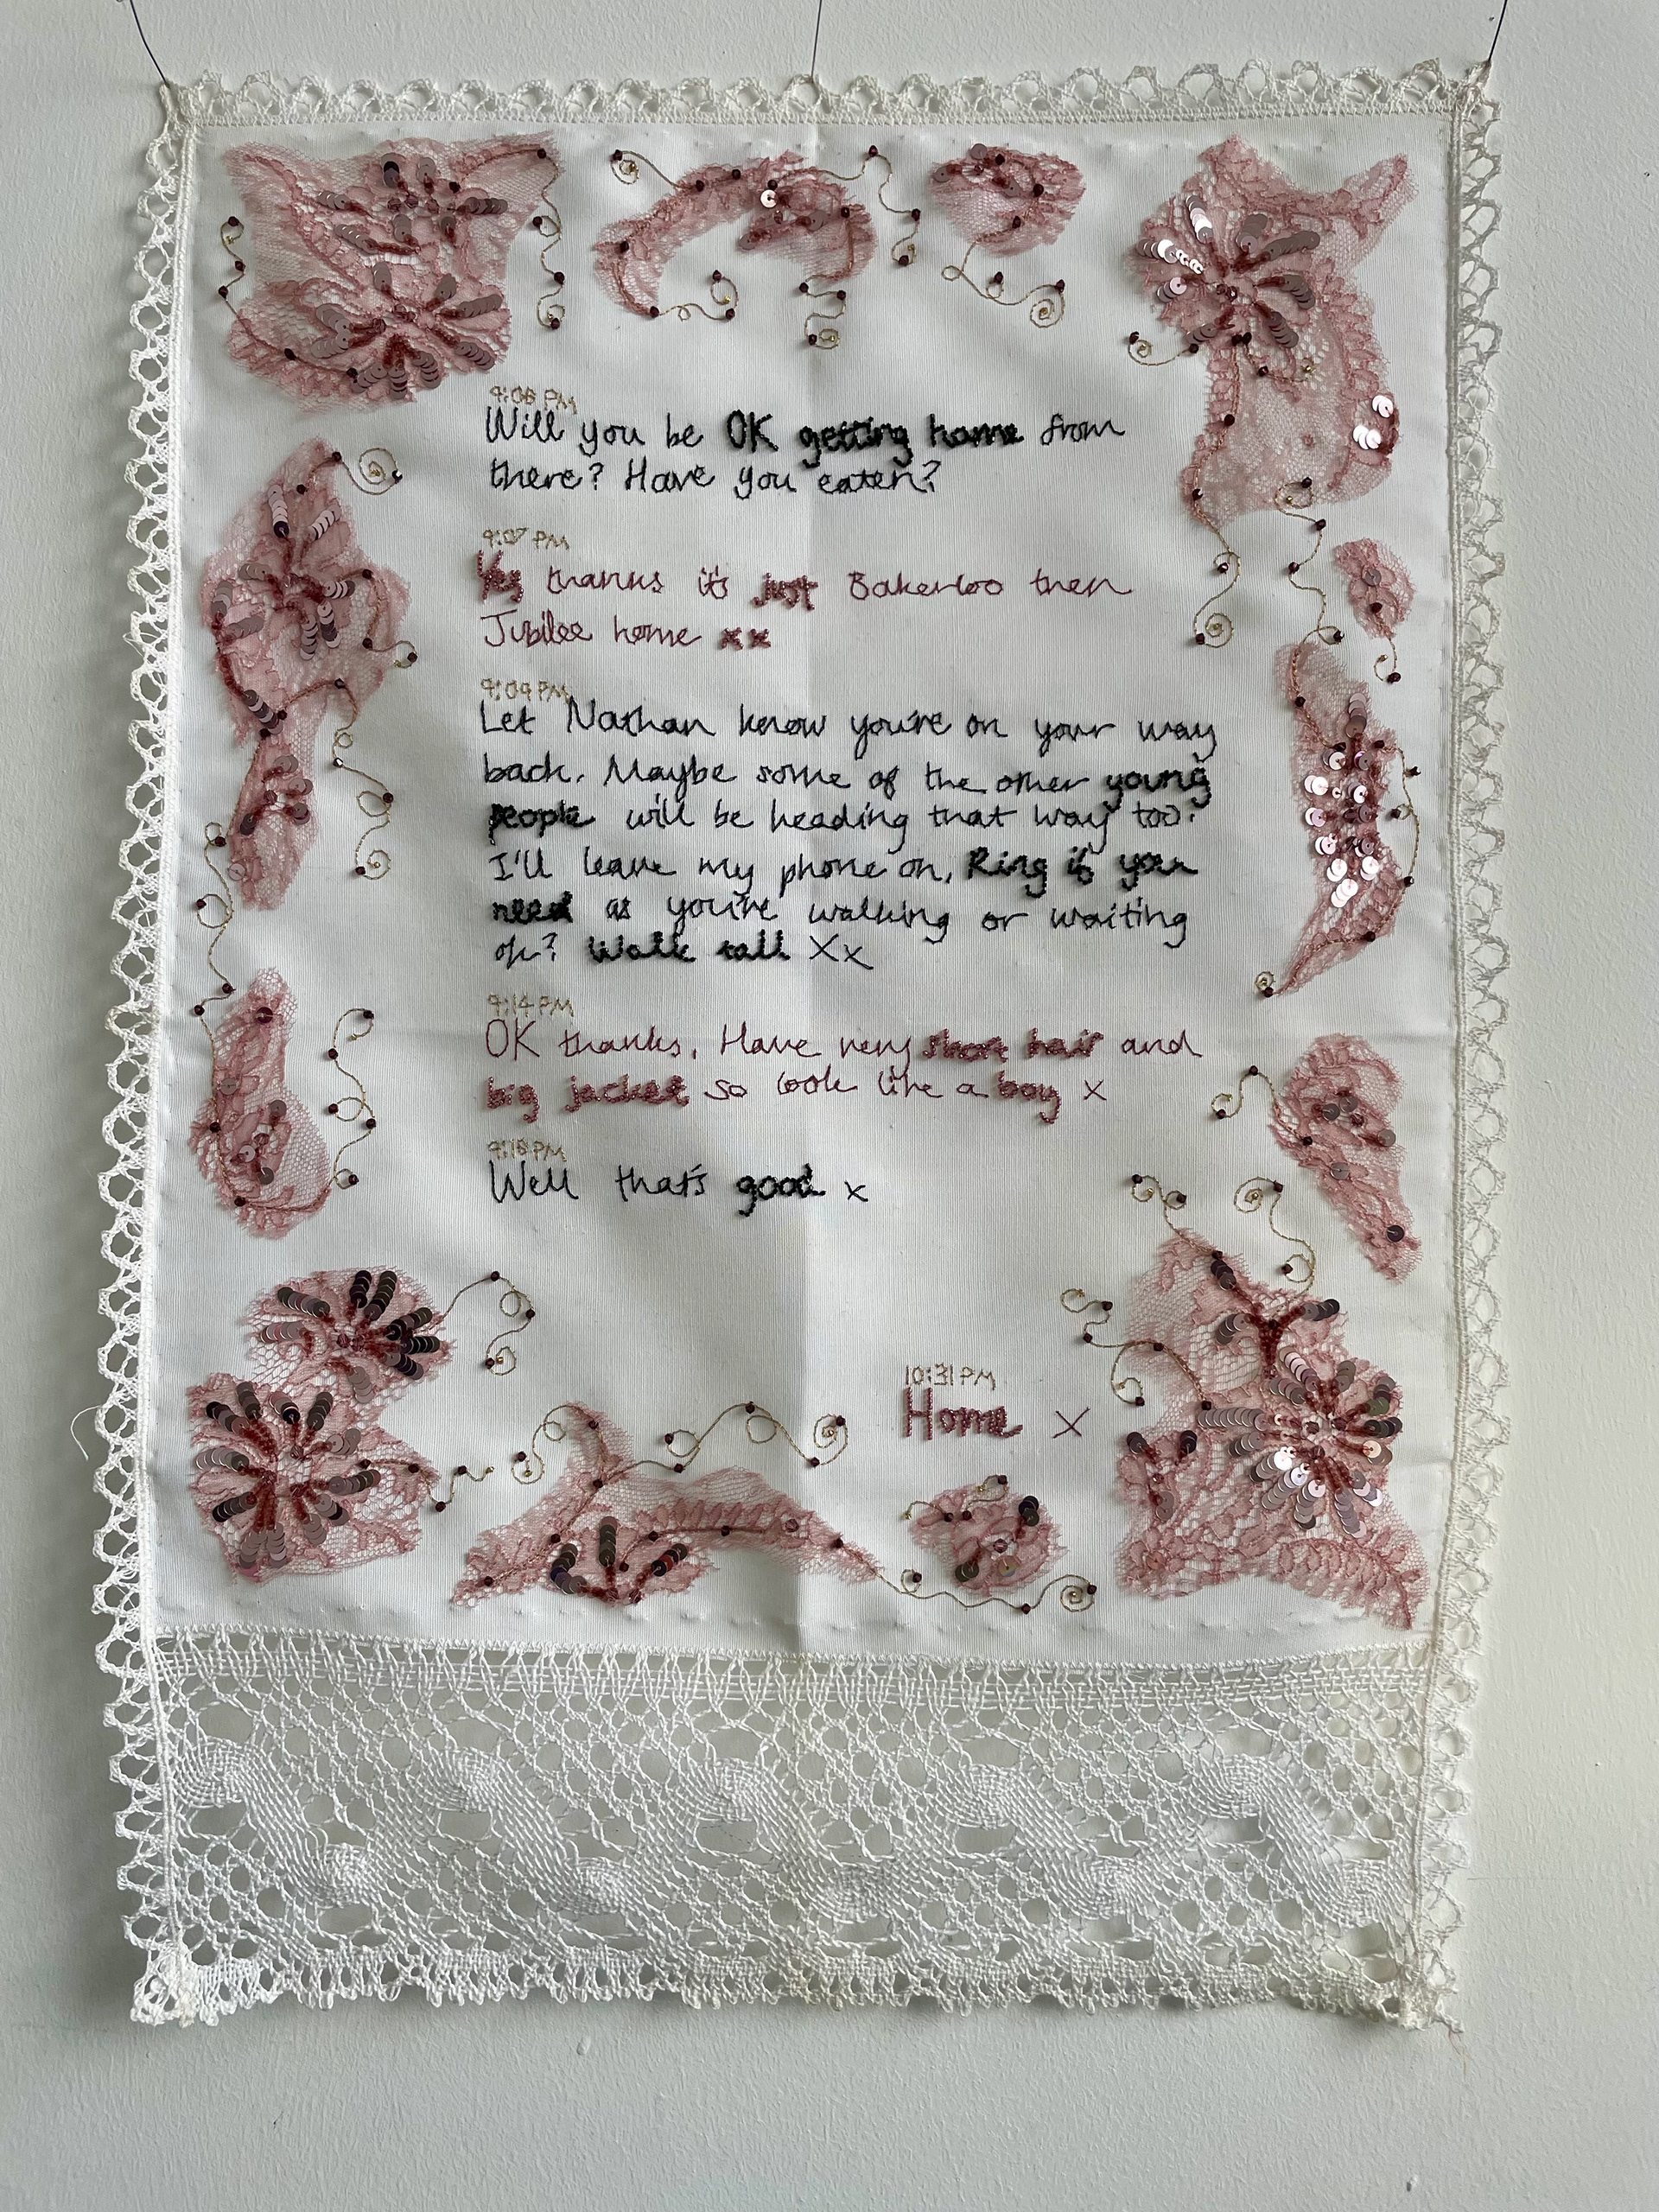 9:06 PM
Will you be OK getting home from
there? Have you eaten?
9:07 PM
Yes thanks it's just Bakerloo then
Jubilee home xx
9:09 PM
Let Nathan know you're on your way
back. Maybe some of the other young
people will be heading that way too?
I'll leave my phone on. Ring if you
need as you're walking or waiting
ok? Walk tall Xx
9:14 PM
OK thanks. Have very short hair and
big jacket so look like a boy x
PM
Well that's good x
10:31 PM
Home X